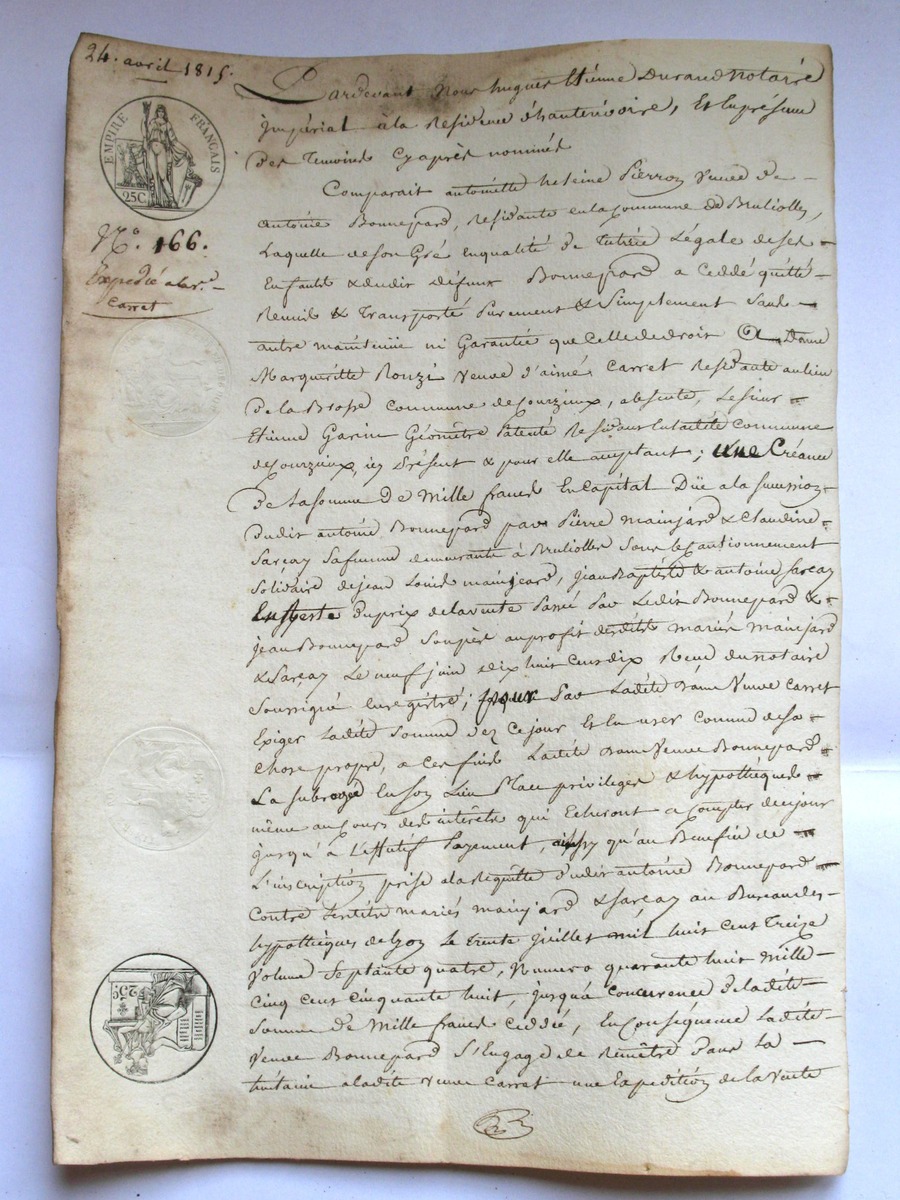 24. avril 1815.
Pardevant Nous hugues Etienne Durand Notaire
Impérial à la Residence de hauterivoire, Et En présence
des Temoins Cyaprès nommés
EMPIRE FRANÇAIS
25C.
Comparait antoinette heleine Pierron Veuve de
N.o 166.
antoine Bonnepard, Residante en la Commune de Bruliolles,
Laquelle de son Gré En qualité de tutrice Légale de ses
Expedié a la V.e
Carret
Enfants & dudit défunt Bonnepard a Ceddé quitté
Remis & Transporté Purement & Simplement Sans
autre maintenüe ni Garantie que Celle de droit A Dame
Margueritte Rouzi Veuve d'aimé Carret Residante au lieu
de la Brosse Commune de Courzieux, absente, Le Sieur
Etienne Garin Géomêtre Patenté Residant En la dite Commune
de Courzieux, icy Présent & pour elle acceptant; une Créance
de la somme de Mille francs En Capital Düe a la succession
dudit antoine Bonnepard par Pierre mainjard & Claudine
Sarcay Sa femme demeurants à Brulliolles Sous le Cautionnement
Solidaire de jean Louis mainjard, jean Baptiste & antoine Sarcay
En Reste du prix de la vente Passé Par Ledit Bonnepard &
jean Bonnepard Son père au profit desdits mariés mainjard
& Sarcay Le neuf juin dix huit cens dix Reçu du notaire
Soussigné Enregistré; pour Par Ladite dame Veuve Carret
Exiger Ladite Somme dez Ce jour Et En user Comme de Sa
Chose propre, a Ces fins Ladite dame Veuve Bonnepard
La subroge En Son Lieu Place privilèges & hypothèques
même au Cours des intérêts qui Echeront a Compter de ce jour
jusqu'à L'Effectif Payement, ainsy qu'au Bénéfice de
L'inscription prise a la Requête dudit antoine Bonnepard
Contre lesdits mariés mainjard & Sarcay au Bureau des
hypothèques de Lyon Le trente juillet mil huit Cent Treize
Volume Septante quatre, Numero quarante huit mille
Cinq Cent Cinquante huit, jusqu'à Concurrence de la dite
Somme de Mille francs Ceddée, En Conséquence Ladite
Veuve Bonnepard S'Engage de Remêtre Dans La
huitaine a ladite veuve Carret une Expedition de la Vente
25C.